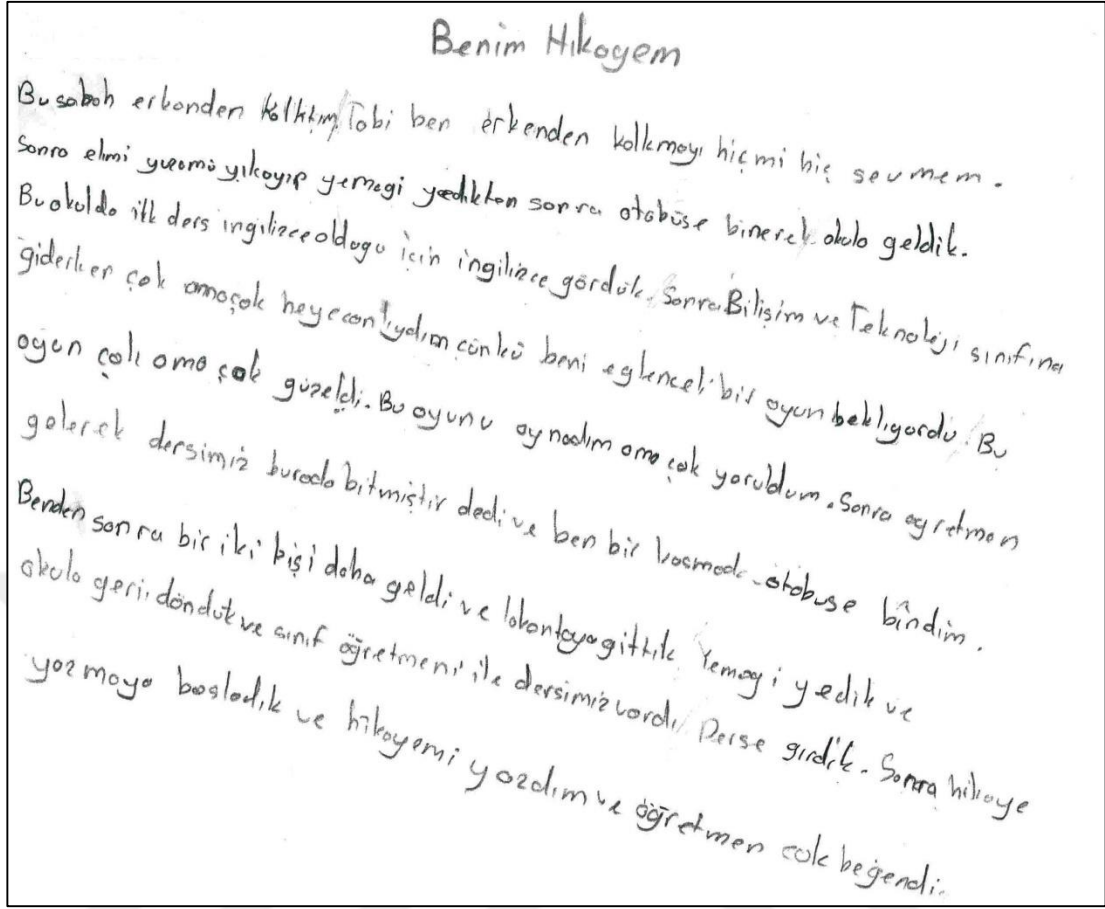 Benim Hikayem
Bu sabah erkenden kalktım. Tabi ben erkenden kalkmayı hiçmi hiç sevmem.
Sonra elmi yüzümü yıkayıp yemegi yedikten sonra otobüse binerek okula geldik.
Bu okulda ilk ders ingilizce oldugu için ingilizce gördük. Sonra Bilişim ve Teknoloji sınıfına
giderken çok ama çok heyecanlıydım çünkü beni eglenceli bir oyun bekliyordu. Bu
oyun çok ama çok güzeldi. Bu oyunu oynadım ama çok yoruldum. Sonra ogretmen
gelerek dersimiz burada bitmiştir dedi ve ben bir otobuse bindim.
Benden sonra bir iki kişi daha geldi ve lokantaya gittik. Yemegi yedik ve
okula geri döndük ve sınıf öğretmeni ile dersimiz vardı. Derse girdik. Sonra hikaye
yazmaya basladık ve hikayemi yazdım ve öğretmen cok beğendi.